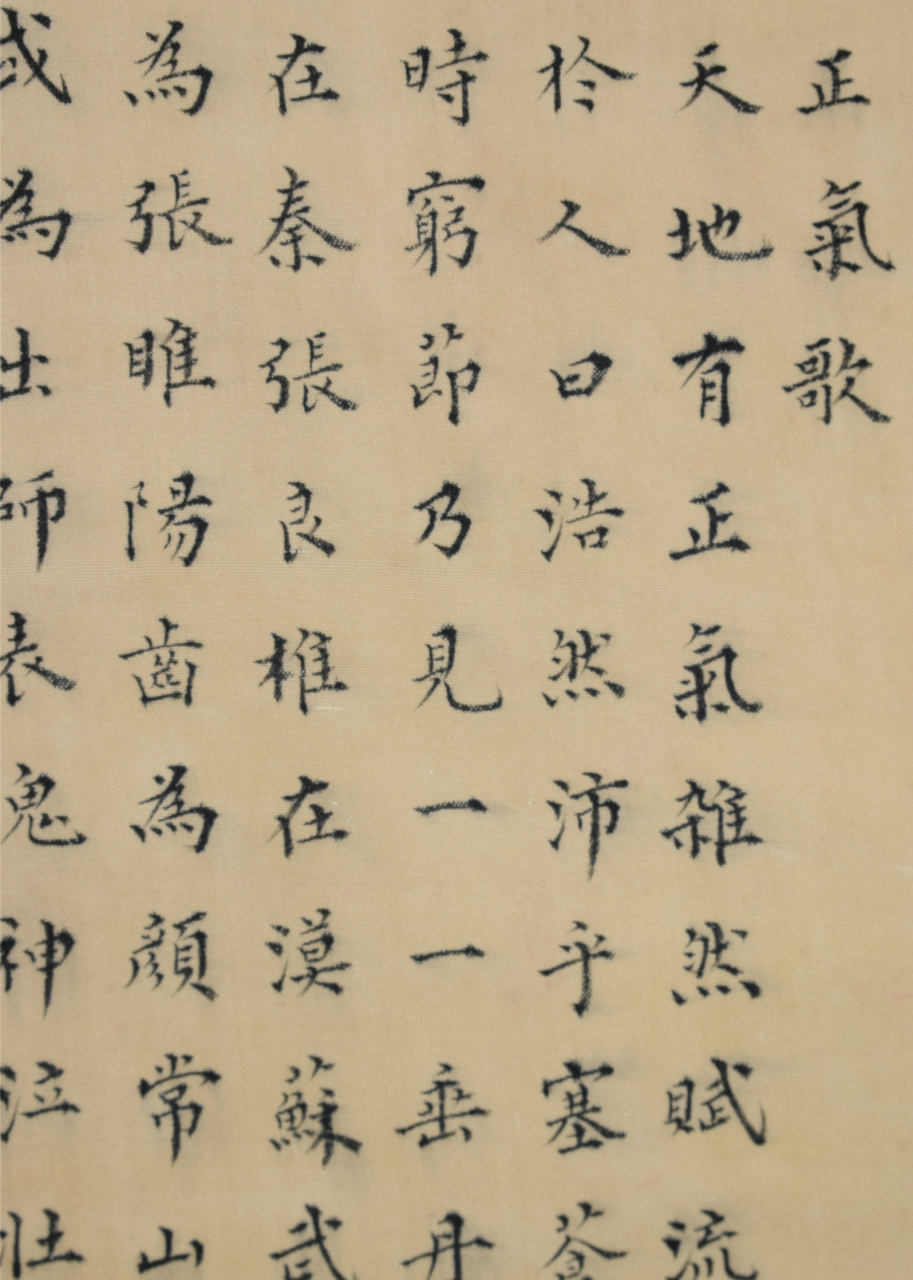 正氣歌
天地有正氣雑然賦流
於人曰浩然沛乎塞蒼
時窮節乃見一一垂丹
在秦張良椎在漠蘇武
為張睢陽齒為顏常山
或為出師表鬼神泣壮